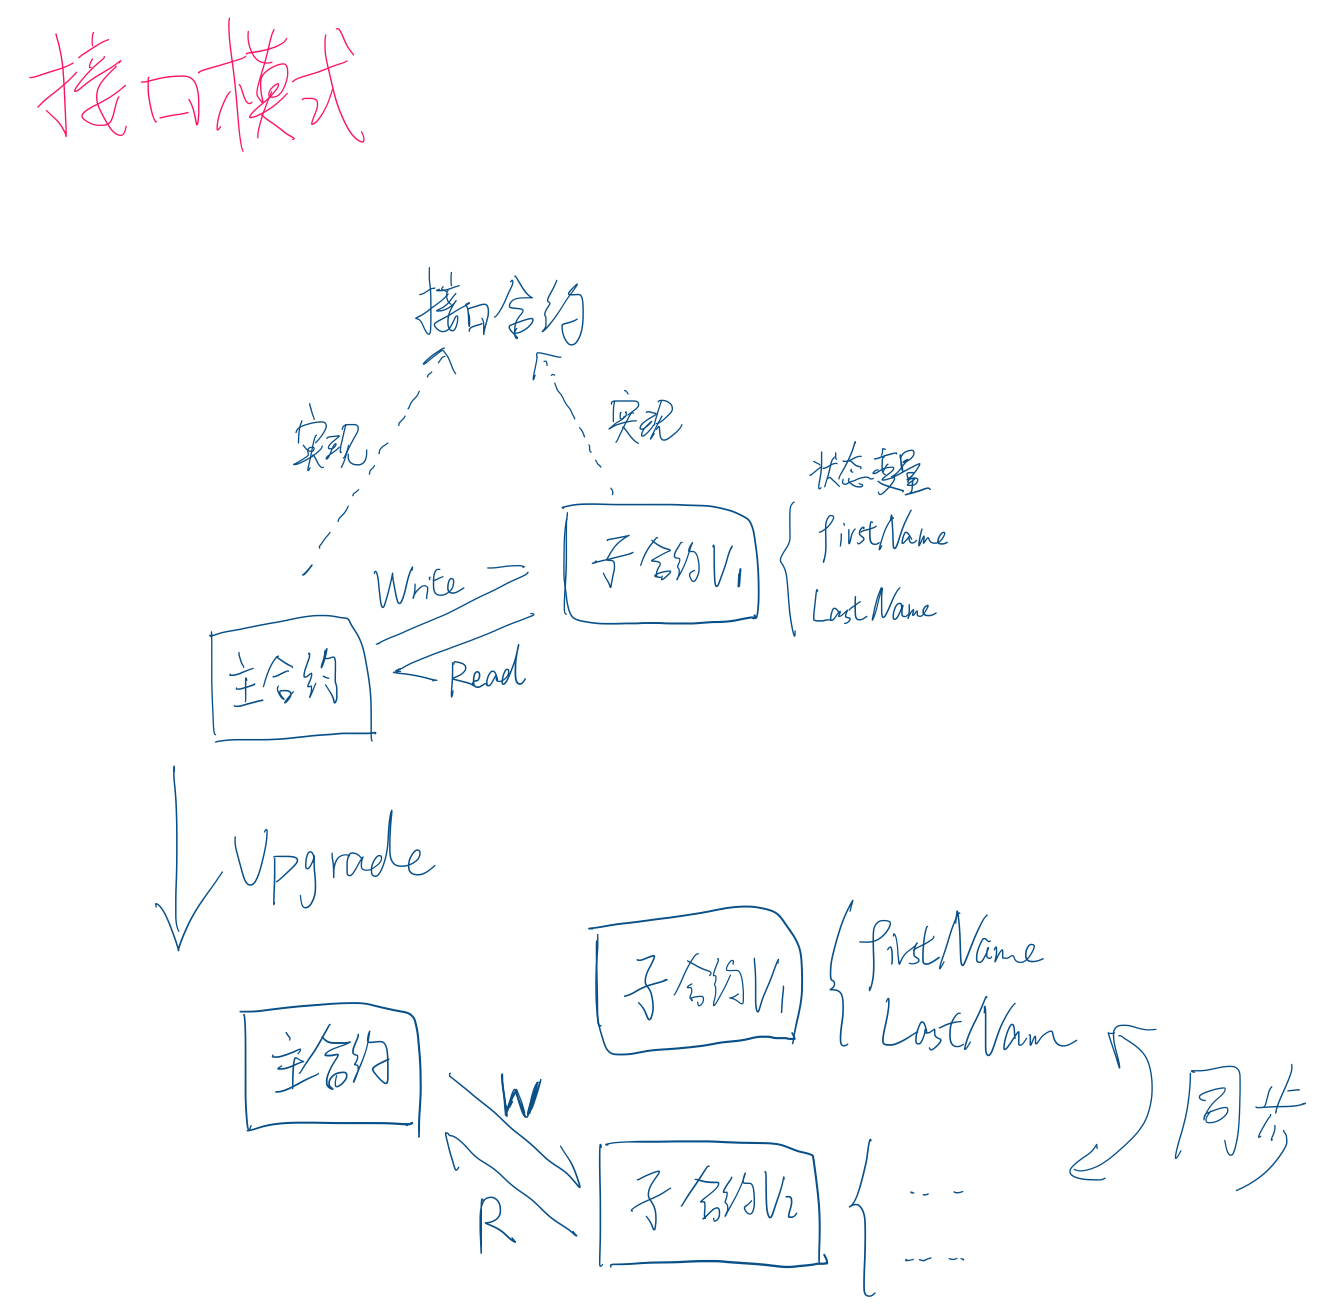 接口模式
接口合约
实现
实现
状态变量
firstName
LastName
子合约V1
Write
Read
主合约
Upgrade
子合约V1
firstName
LastNam
主合约
W
R
同步
子合约V2
... 
....